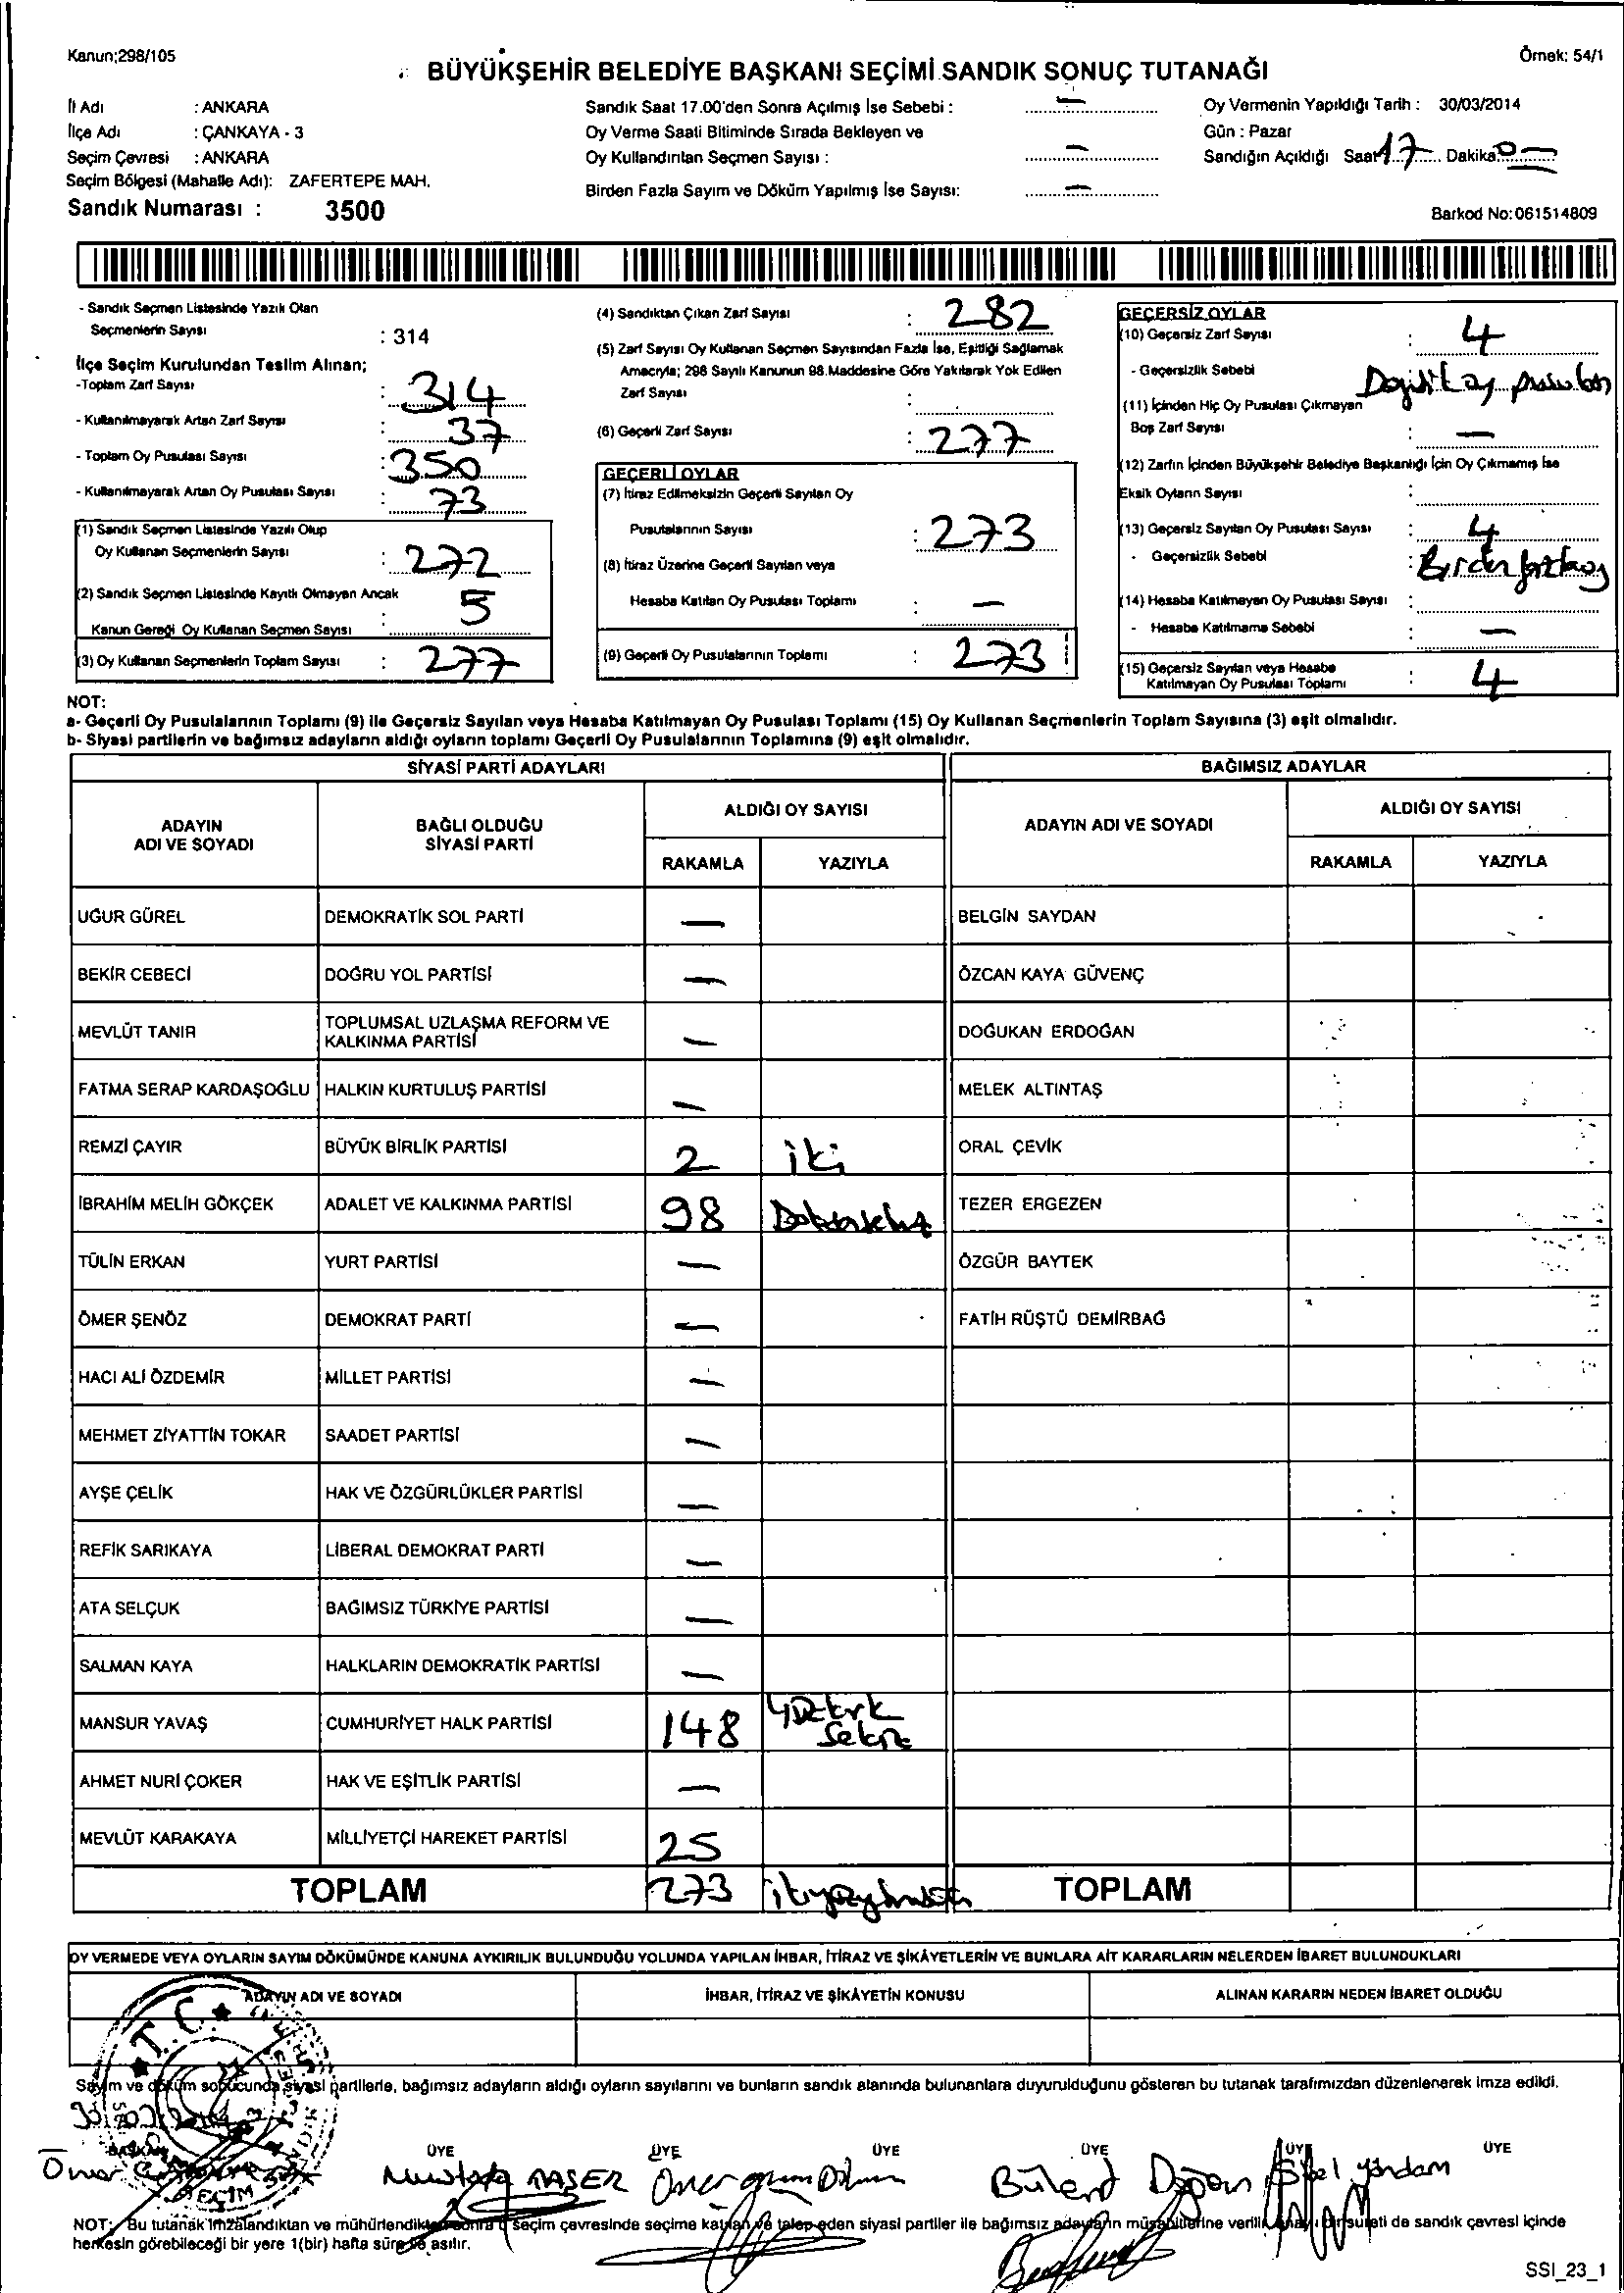 Kanun;298/105
Örnek: 54/1
BÜYÜKŞEHİR BELEDİYE BAŞKANI SEÇİMİ SANDIK SONUÇ TUTANAĞI
İl Adı : ANKARA
İlçe Adı : ÇANKAYA - 3
Seçim Çevresi : ANKARA
Seçim Bölgesi (Mahalle Adı): ZAFERTEPE MAH.
Sandık Numarası : 3500
Sandık Saat 17.00'den Sonra Açılmış İse Sebebi : —
Oy Verme Saati Bitiminde Sırada Bekleyen ve
Oy Kullandırılan Seçmen Sayısı : —
Birden Fazla Sayım ve Döküm Yapılmış İse Sayısı: —
Oy Vermenin Yapıldığı Tarih : 30/03/2014
Gün : Pazar
Sandığın Açıldığı Saat 17 Dakika 0
Barkod No:061514809
- Sandık Seçmen Listesinde Yazılı Olan
Seçmenlerin Sayısı : 314
İlçe Seçim Kurulundan Teslim Alınan;
-Toplam Zarf Sayısı : 314
- Kullanılmayarak Artan Zarf Sayısı : 37
- Toplam Oy Pusulası Sayısı : 350
- Kullanılmayarak Artan Oy Pusulası Sayısı : 73
(1) Sandık Seçmen Listesinde Yazılı Olup
Oy Kullanan Seçmenlerin Sayısı : 272
(2) Sandık Seçmen Listesinde Kayıtlı Olmayan Ancak
Kanun Gereği Oy Kullanan Seçmen Sayısı : 5
(3) Oy Kullanan Seçmenlerin Toplam Sayısı : 277
(4) Sandıktan Çıkan Zarf Sayısı : 282
(5) Zarf Sayısı Oy Kullanan Seçmen Sayısından Fazla İse, Eşitliği Sağlamak
Amacıyla; 298 Sayılı Kanunun 98.Maddesine Göre Yakılarak Yok Edilen
Zarf Sayısı :
(6) Geçerli Zarf Sayısı : 277
GEÇERLİ OYLAR
(7) İtiraz Edilmeksizin Geçerli Sayılan Oy
Pusulalarının Sayısı : 273
(8) İtiraz Üzerine Geçerli Sayılan veya
Hesaba Katılan Oy Pusulası Toplamı : —
(9) Geçerli Oy Pusulalarının Toplamı : 273
GEÇERSİZ OYLAR
(10) Geçersiz Zarf Sayısı : 4
- Geçersizlik Sebebi
(11) İçinden Hiç Oy Pusulası Çıkmayan
Boş Zarf Sayısı : —
(12) Zarfın İçinden Büyükşehir Belediye Başkanlığı İçin Oy Çıkmamış İse
Eksik Oyların Sayısı :
(13) Geçersiz Sayılan Oy Pusulası Sayısı : 4
- Geçersizlik Sebebi : Birden fazla oy
(14) Hesaba Katılmayan Oy Pusulası Sayısı :
- Hesaba Katılmama Sebebi : —
(15) Geçersiz Sayılan veya Hesaba
Katılmayan Oy Pusulası Toplamı : 4
NOT:
a- Geçerli Oy Pusulalarının Toplamı (9) ile Geçersiz Sayılan veya Hesaba Katılmayan Oy Pusulası Toplamı (15) Oy Kullanan Seçmenlerin Toplam Sayısına (3) eşit olmalıdır.
b- Siyasi partilerin ve bağımsız adayların aldığı oyların toplamı Geçerli Oy Pusulalarının Toplamına (9) eşit olmalıdır.
SİYASİ PARTİ ADAYLARI
BAĞIMSIZ ADAYLAR
ADAYIN
ADI VE SOYADI
BAĞLI OLDUĞU
SİYASİ PARTİ
ALDIĞI OY SAYISI
RAKAMLA YAZIYLA
ADAYIN ADI VE SOYADI
ALDIĞI OY SAYISI
RAKAMLA YAZIYLA
UĞUR GÜREL DEMOKRATİK SOL PARTİ — BELGİN SAYDAN
BEKİR CEBECİ DOĞRU YOL PARTİSİ — ÖZCAN KAYA GÜVENÇ
MEVLÜT TANIR TOPLUMSAL UZLAŞMA REFORM VE
KALKINMA PARTİSİ — DOĞUKAN ERDOĞAN
FATMA SERAP KARDAŞOĞLU HALKIN KURTULUŞ PARTİSİ — MELEK ALTINTAŞ
REMZİ ÇAYIR BÜYÜK BİRLİK PARTİSİ 2 iki ORAL ÇEVİK
İBRAHİM MELİH GÖKÇEK ADALET VE KALKINMA PARTİSİ 98 TEZER ERGEZEN
TÜLİN ERKAN YURT PARTİSİ — ÖZGÜR BAYTEK
ÖMER ŞENÖZ DEMOKRAT PARTİ — FATİH RÜŞTÜ DEMİRBAĞ
HACI ALİ ÖZDEMİR MİLLET PARTİSİ —
MEHMET ZİYATTİN TOKAR SAADET PARTİSİ —
AYŞE ÇELİK HAK VE ÖZGÜRLÜKLER PARTİSİ —
REFİK SARIKAYA LİBERAL DEMOKRAT PARTİ —
ATA SELÇUK BAĞIMSIZ TÜRKİYE PARTİSİ —
SALMAN KAYA HALKLARIN DEMOKRATİK PARTİSİ —
MANSUR YAVAŞ CUMHURİYET HALK PARTİSİ 148
AHMET NURİ ÇOKER HAK VE EŞİTLİK PARTİSİ —
MEVLÜT KARAKAYA MİLLİYETÇİ HAREKET PARTİSİ 25
TOPLAM 273 TOPLAM
OY VERMEDE VEYA OYLARIN SAYIM DÖKÜMÜNDE KANUNA AYKIRILIK BULUNDUĞU YOLUNDA YAPILAN İHBAR, İTİRAZ VE ŞİKÂYETLERİN VE BUNLARA AİT KARARLARIN NELERDEN İBARET BULUNDUKLARI
ADAYIN ADI VE SOYADI İHBAR, İTİRAZ VE ŞİKÂYETİN KONUSU ALINAN KARARIN NEDEN İBARET OLDUĞU
T.C.
Sayım ve döküm sonucunda siyasi partilerle, bağımsız adayların aldığı oyların sayılarını ve bunların sandık alanında bulunanlara duyurulduğunu gösteren bu tutanak tarafımızdan düzenlenerek imza edildi.
BAŞKAN ÜYE ÜYE ÜYE ÜYE ÜYE ÜYE
Ömer Mustafa Bülent Doğan Sibel Yardam
SEÇİM
NOT: Bu tutanak imzalandıktan ve mühürlendikten sonra seçim çevresinde seçime katılan ve talep eden siyasi partiler ile bağımsız adayların müşahitlerine verilir bir sureti de sandık çevresi içinde
herkesin görebileceği bir yere 1(bir) hafta süre ile asılır.
SSI_23_1